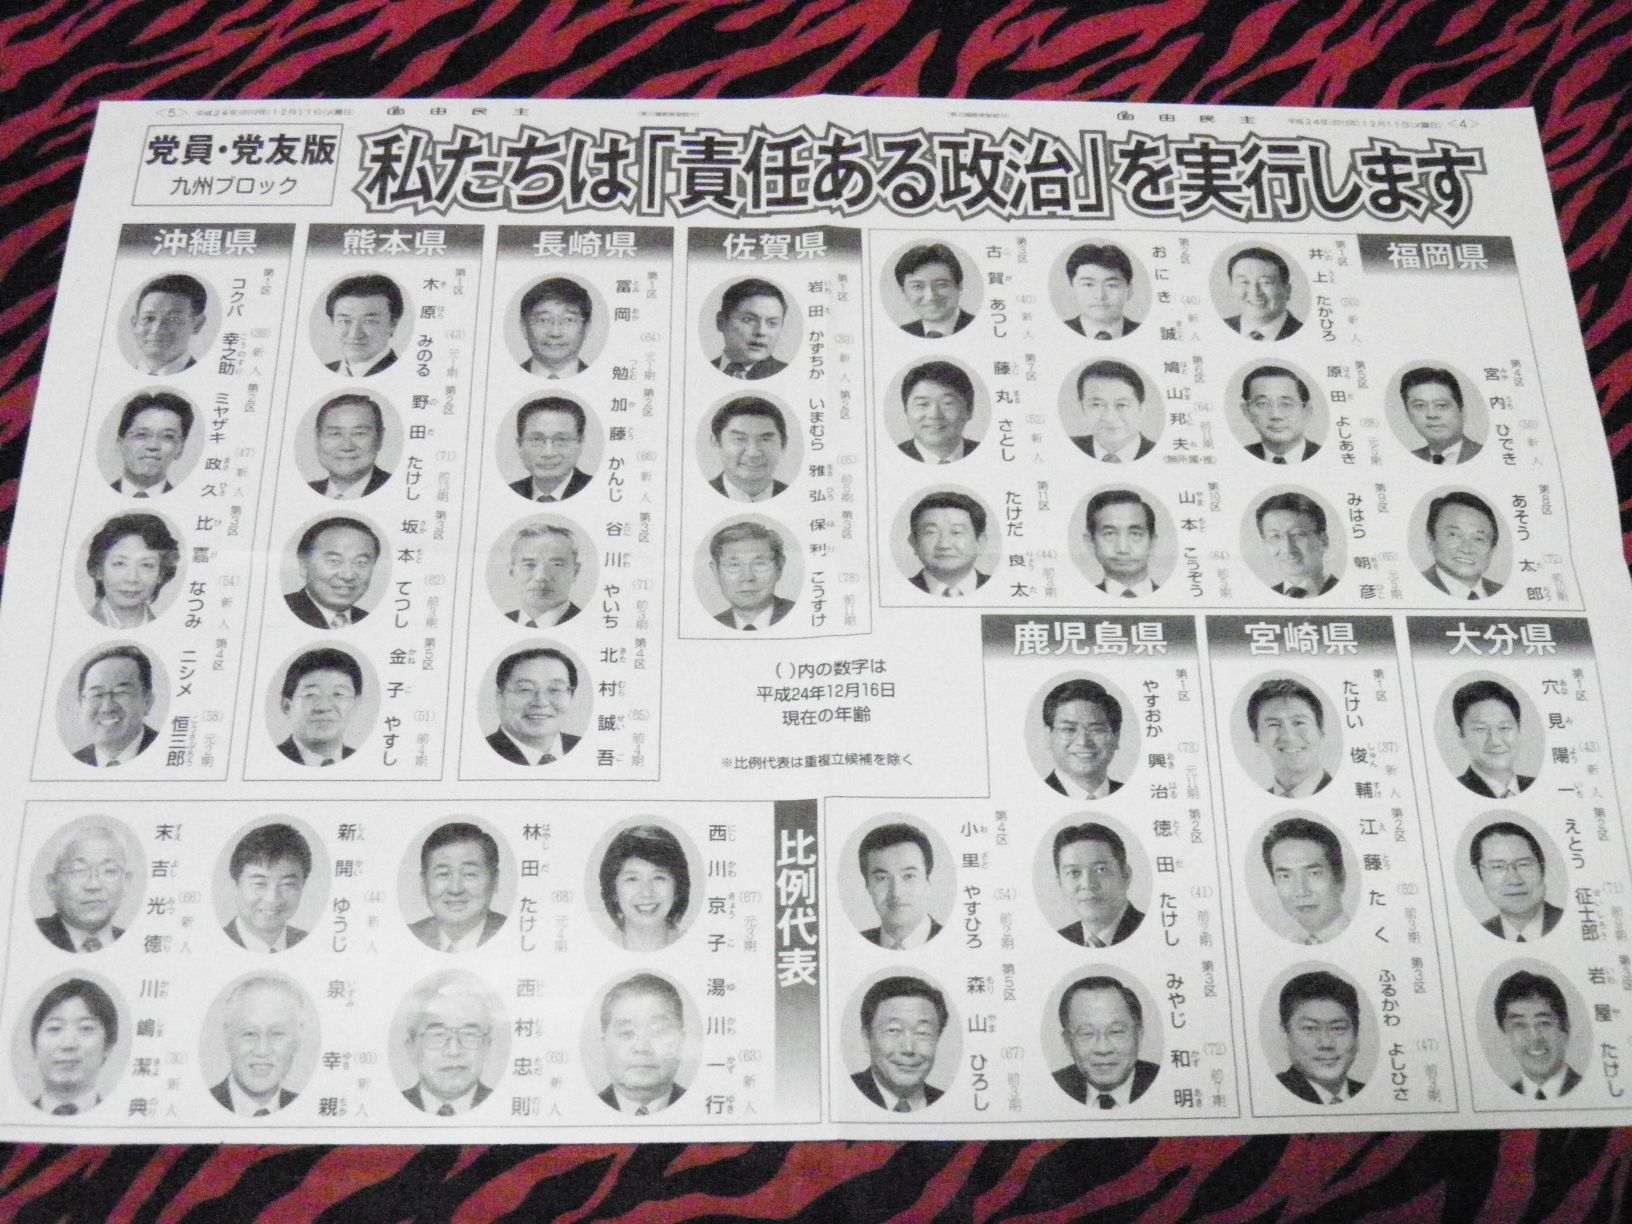 <5> 平成24年(2012年)12月11日(火曜日)
自由民主
自由民主
平成24年(2012年)12月11日(火曜日) <4>
党員・党友版
九州ブロック
私たちは「責任ある政治」を実行します
福岡県
第1区 井上たかひろ (50) 新人
第2区 おにき誠 (40) 新人
第3区 古賀あつし (40) 新人
第4区 宮内ひでき (50) 新人
第5区 原田よしあき (68)
第6区 鳩山邦夫 (64) (無所属・推)
第7区 藤丸さとし (52) 新人
第8区 あそう太郎 (72)
第9区 みはら朝彦 (65)
第10区 山本こうぞう (64)
第11区 たけだ良太 (44)
佐賀県
第1区 岩田かずちか (39) 新人
第2区 いまむら雅弘 (65)
第3区 保利こうすけ (78)
長崎県
第1区 冨岡勉 (64) 元1期
第2区 加藤かんじ (66) 新人
第3区 谷川やいち (71) 前3期
第4区 北村誠吾 (65) 前4期
熊本県
第1区 木原みのる (43) 元1期
第2区 野田たけし (71)
第3区 坂本てつし (62) 前3期
第5区 金子やすし (51) 前4期
沖縄県
第1区 コクバ幸之助 (39) 新人
第2区 ミヤザキ政久 (47) 新人
第3区 比嘉なつみ (54) 新人
第4区 ニシメ恒三郎 (58) 元2期
( )内の数字は
平成24年12月16日
現在の年齢
※比例代表は重複立候補を除く
大分県
第1区 穴見陽一 (43) 新人
第2区 えとう征士郎 (71)
第3区 岩屋たけし
宮崎県
第1区 たけい俊輔 (37) 新人
第2区 江藤たく (52) 前3期
第3区 ふるかわよしひさ (47) 前3期
鹿児島県
第1区 やすおか興治 (73)
第2区 徳田たけし (41) 前2期
第3区 みやじ和明 (72)
第4区 小里やすひろ (54) 前2期
第5区 森山ひろし (67) 前3期
比例代表
西川京子 (67) 元3期
林田たけし (68)
新開ゆうじ (44) 新人
末吉光徳 (66) 新人
湯川一行 (63) 新人
西村忠則 (63) 新人
泉幸親 (60) 新人
川嶋潔典 (30) 新人